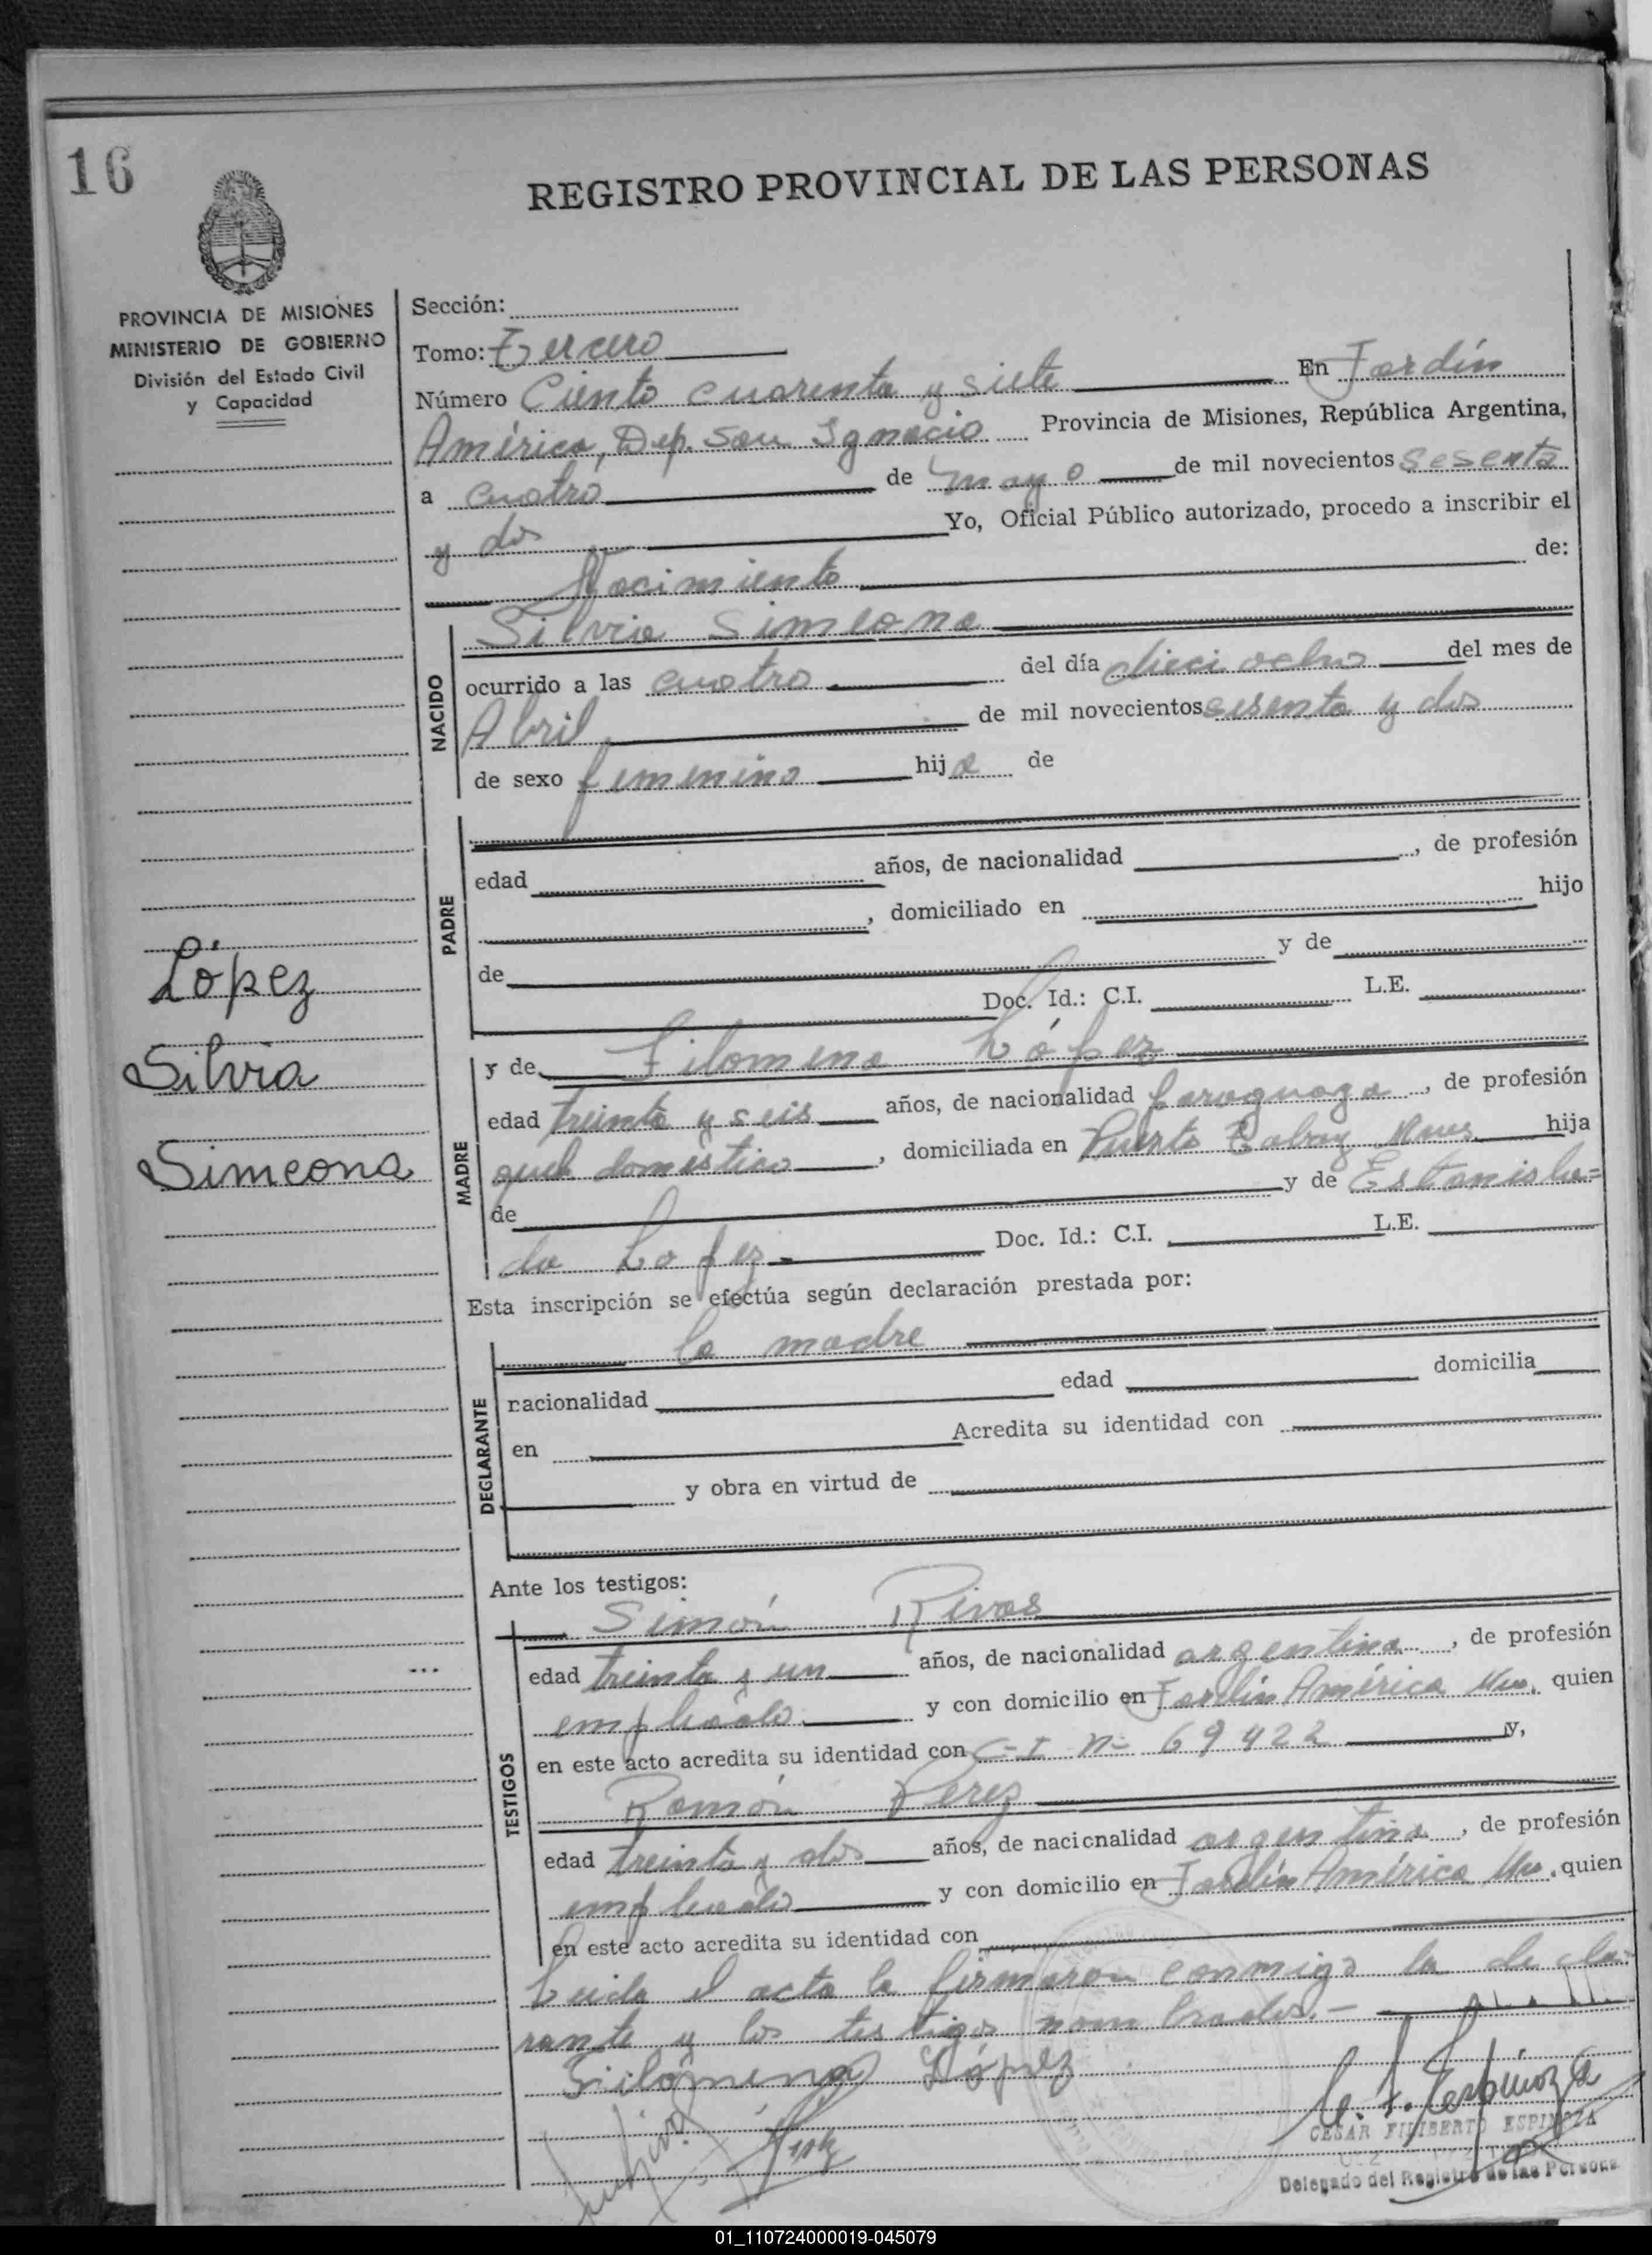 16
REGISTRO PROVINCIAL DE LAS PERSONAS
PROVINCIA DE MISIONES
MINISTERIO DE GOBIERNO
División del Estado Civil
y Capacidad
López
Silvia
Simeona
Sección:
Tomo: Tercero
Número Ciento cuarenta y siete En Jardín
América, Dep. San Ignacio Provincia de Misiones, República Argentina,
a cuatro de mayo de mil novecientos sesenta
y dos Yo, Oficial Público autorizado, procedo a inscribir el
Nacimiento de:
NACIDO
Silvia Simeona
ocurrido a las cuatro del día dieciocho del mes de
Abril de mil novecientos sesenta y dos
de sexo femenino hija de
PADRE
edad años, de nacionalidad , de profesión
, domiciliado en hijo
de y de
Doc. Id.: C.I. L.E.
MADRE
y de Filomena López
edad treinta y seis años, de nacionalidad paraguaya , de profesión
queh. doméstico , domiciliada en Puerto hija
de y de Estanisla=
da Lopez Doc. Id.: C.I. L.E.
Esta inscripción se efectúa según declaración prestada por:
DECLARANTE
la madre
nacionalidad edad domicilia
en Acredita su identidad con
y obra en virtud de
Ante los testigos:
TESTIGOS
Simón Rivas
edad treinta y un años, de nacionalidad argentina , de profesión
empleado y con domicilio en Jardín América Mnes. quien
en este acto acredita su identidad con C-I n- 69422 y,
Ramón Perez
edad treinta y dos años, de nacionalidad argentina , de profesión
empleado y con domicilio en Jardín América Mnes. quien
en este acto acredita su identidad con
Leida el acta la firmaron conmigo la decla=
rante y los testigos nombrados.-
Filomena López
C. F. Espinoza
CESAR FILIBERTO ESPINOZA
Delegado del Registro de las Personas
01_110724000019-045079